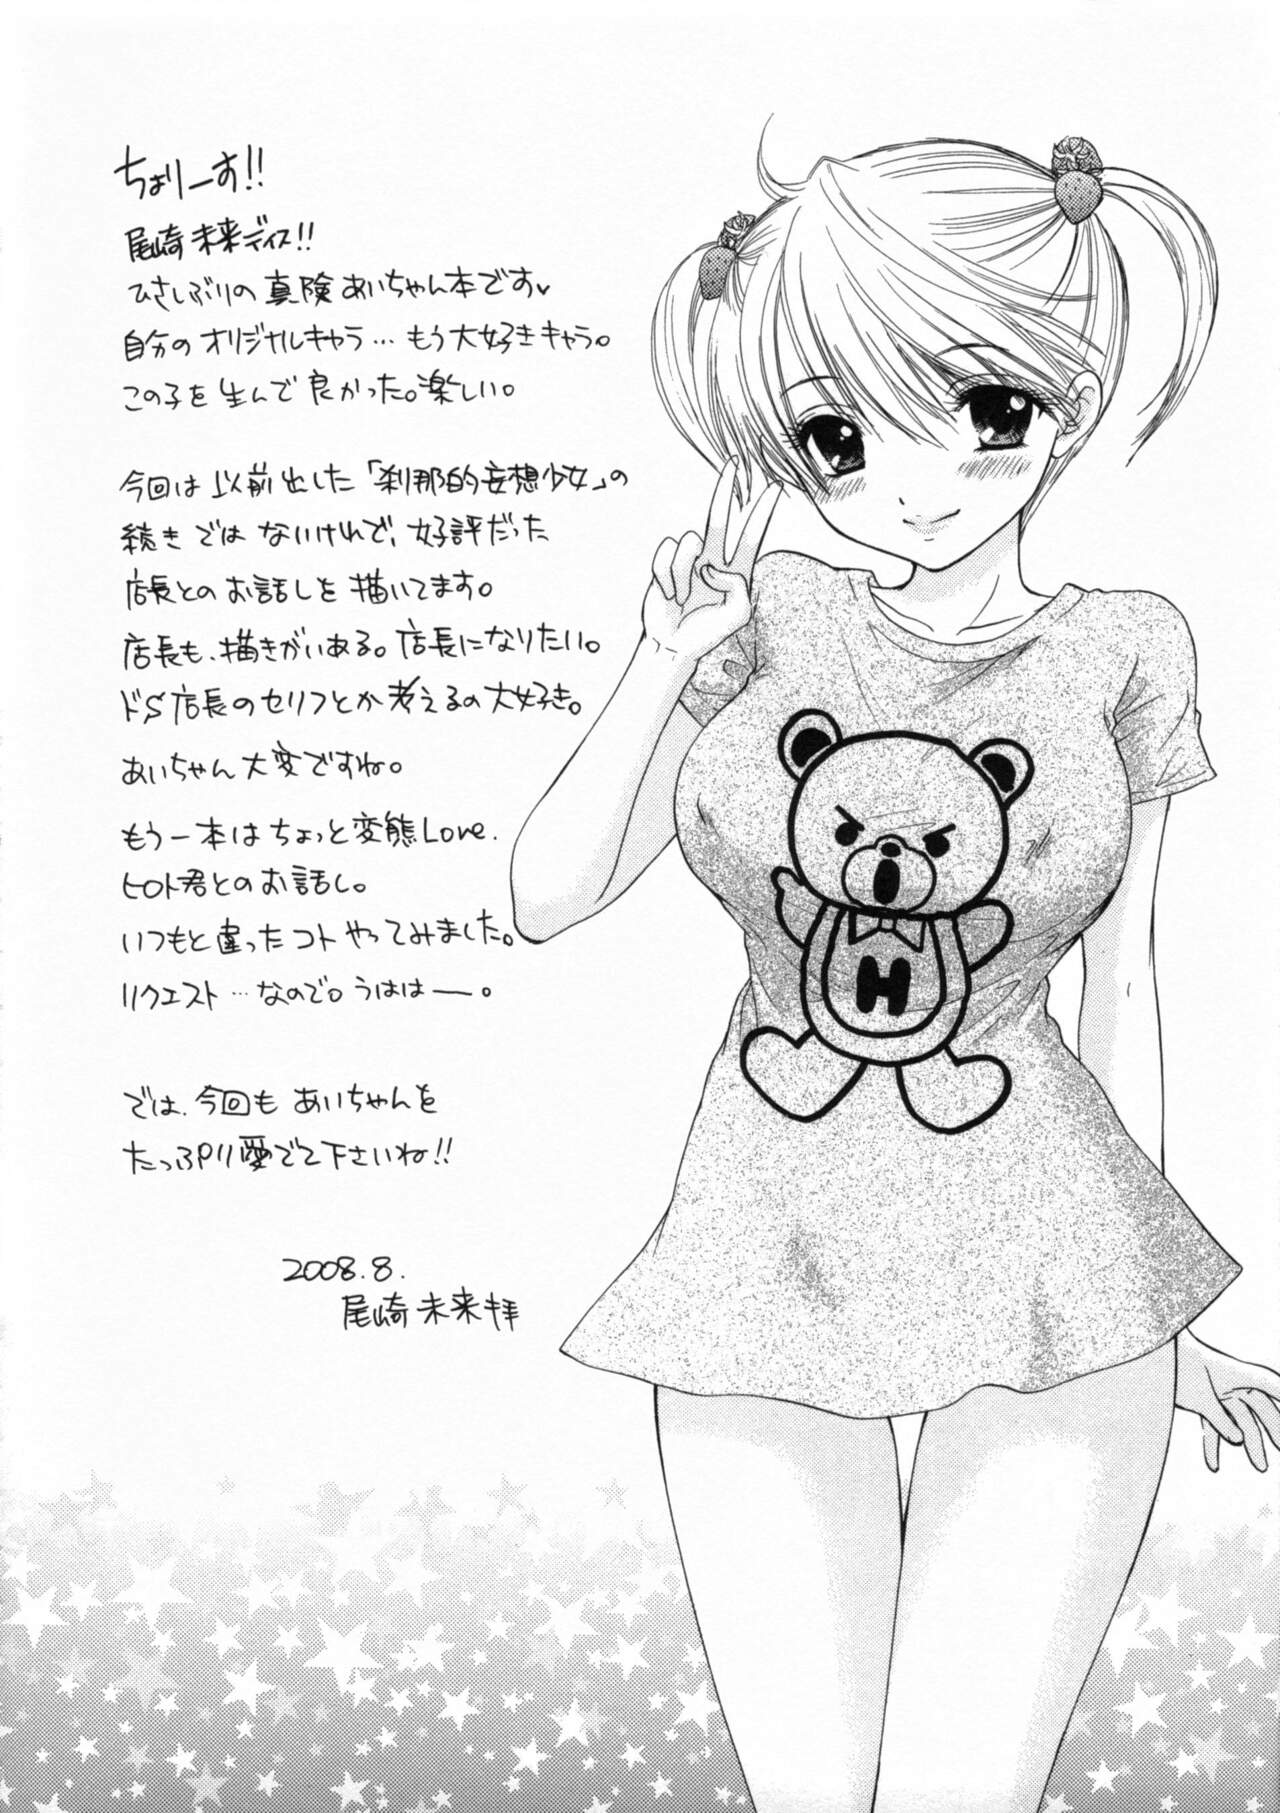 ちょりーす!!
尾崎未来デイス!!
ひさしぶりの真険あいちゃん本です♥
自分のオリジナルキャラ…もう大好きキャラ。
この子を生んで良かった。楽しい。
今回は以前出した「刹那的妄想少女」の
続きではないけれど、好評だった
店長とのお話しを描いてます。
店長も、描きがいある。店長になりたい。
ドS店長のセリフとか考えるの大好き。
あいちゃん大変ですね。
もう一本はちょっと変態Love.
ヒロト君とのお話し。
いつもと違ったコトやってみました。
リクエスト…なので。うはは―。
では、今回もあいちゃんを
たっぷり愛でて下さいね!!
2008.8.
尾崎未来拝
H